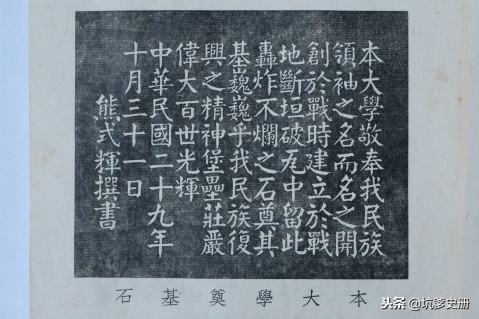 本大學敬奉我民族
領袖之名而名之開
創於戰時建立於戰
地斷垣破瓦中留此
轟炸不爛之石奠其
基巍巍乎我民族復
興之精神堡壘莊嚴
偉大百世光輝
中華民國二十九年
十月三十一日
熊式輝撰書
本大學奠基石
头条 @坑爹史册